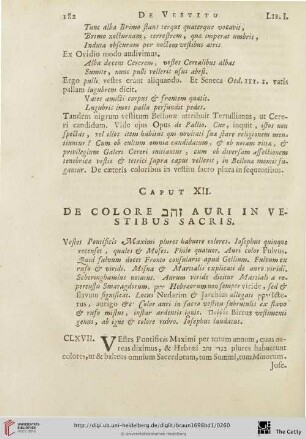 182 DE VESTITU LIB. I.
Tunc alba Brimo stant terque quaterque vocavit,
Brimo nocturnam, terrestrem, qua imperat umbris,
Induta obscuram per noctem vestibus atris
Ex Ovidio modo audivimus,
Alba decent Cererem, vestes Cerealibus albas
Sumite, nunc pulli velleris usus abest.
Ergo pulli vestes erant aliquando. Et Seneca Oed. III. I. vatis
pallam lugubrem dicit.
Vates amicti corpus & frontem quatit.
Lugubris imos palla perfundit pedes.
Tandem nigrum vestitum Bellonæ attribuit Tertullianus, ut Cere-
ri candidum. Vide ejus Opus de Pallio. Cur, inquit,
Cum ob cultum omnia candidatum, & ob notam vitta, &
privilegium Galeri Cereri initiantur, cum ob diversam affectionem
tenebrica vestis & tetrici supra caput velleris, in Bellona montes fu-
gantur. De cæteris coloribus in vestitu sacro plura in sequentibus.
CAPUT XII.
DE COLORE זהב AURI IN VE-
STIBUS SACRIS.
Vestes Pontificis Maximi plures habuere colores. Josephus quinque
recenset, quales & Moses. Philo quatuor. Auri color Fulvus.
Quid fulvum docet Fronto consularis apud Gellium. Fulvum ex
rufo & viridi. Misna & Martialis explicati de auro viridi.
Scheringhamius notatus. Aurum viride dicitur Martiali a re-
percussu Smaragdorum. Hebræorum non semper viride, sed &
flavum significat. Locus Nedarim & Jarchius allegati
aurigo &c. Color auri in sacro vestitu subrutilus ex flavo
& rufo mistus, instar ardentis ignis. Poetis Birrus vestimenti
genus, ab igne & colore rubro. Josephus laudatus.
CLXVII. VEstes Pontificis Maximi per totum annum, quas au-
reas dicimus, & Hebræi בגדי זהב plures habuerunt
colores, ut & balteus omnium Sacerdotum, tum Summi, tum Minorum.
Jose.
http://digi.ub.uni-heidelberg.de/diglit/braun1698bd1/0260
© Universitätsbibliothek Heidelberg
UNIVERSITÄTS-
BIBLIOTHEK
HEIDELBERG
The Getty